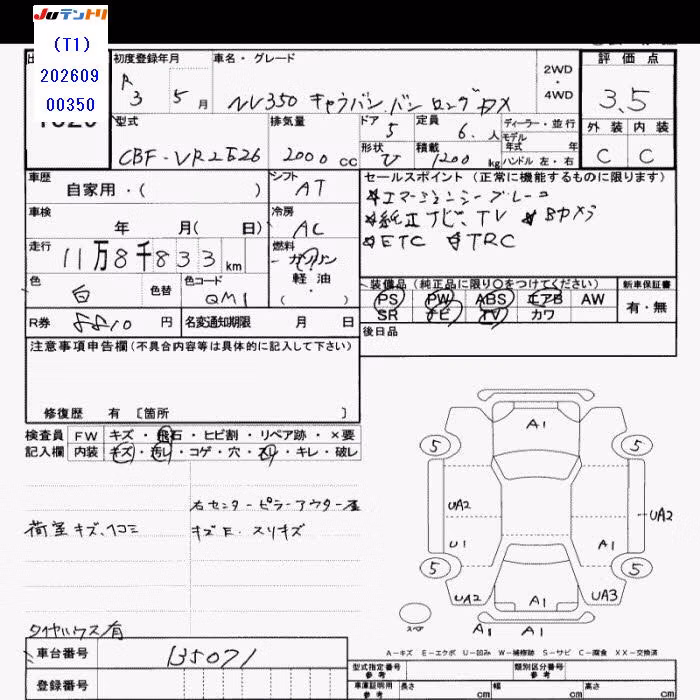 JUテントリ
(T1)
202609
00350
初度登録年月
R3 5月
車名・グレード
NV350 キャラバン バン ロング DX
2WD
・
4WD
評価点
3.5
外装 内装
C C
型式
CBF-VR2E26
排気量
2000 cc
ドア
5
定員
6.人
形状
V
積載
1200 kg
ディーラー・並行
モデル
年式 年
ハンドル 左・右
車歴
自家用・( )
シフト
AT
セールスポイント (正常に機能するものに限ります)
☆エマージェンシーブレーキ
☆純正ナビ、TV ☆Bカメラ
☆ETC ☆TRC
車検
年 月( 日)
冷房
AC
走行
11万8千833km
燃料
ガソリン
軽油
・
( )
色
白
色替
色コード
QM1
装備品(純正品に限り○をつけてください)
PS PW ABS エアB AW
SR ナビ TV カワ
新車保証書
有・無
R券
8810 円
名変通知期限 月 日
後日品
注意事項申告欄(不具合内容等は具体的に記入して下さい)
修復歴 有 〔箇所 〕
検査員
記入欄
FW キズ・飛石・ヒビ割・リペア跡・×要
内装 キズ・汚レ・コゲ・穴・スリ・キレ・破レ
右センターピラーアウター座
荷室キズ、ヘコミ
キズE・スリキズ
タイヤハウス有
A1
5 5
UA2 UA2
U1 A1
5 5
UA2 A1 UA3
スペア
A1 A1
A-キズ E-エクボ U-凹み W-補修跡 S-サビ C-腐食 XX-交換済
車台番号
135071
登録番号
型式指定番号
参考
類別区分番号
参考
車庫証明用
参考
長さ cm 幅 cm 高 cm